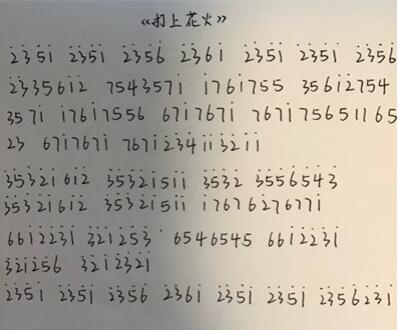 《打上花火》
2̇3̇5̇1̇ 2̇3̇5̇1̇ 2̇3̇5̇6̇ 2̇3̇6̇1̇ 2̇3̇5̇1̇ 2̇3̇5̇1̇ 2̇3̇5̇6
2̇3̇3̇5612̇ 7543571̇ 1̇761̇755 35612̇754
3571̇ 1̇761̇7556 671̇7671̇ 7671̇756511̇65
23 671̇7671̇ 7671̇2̇3̇4̇1̇1̇3̇2̇1̇1̇
3̇5̇3̇2̇1̇61̇2̇ 3̇5̇3̇2̇1̇51̇1̇ 3̇5̇3̇2̇ 3̇5̇5̇6̇5̇4̇3̇
3̇5̇3̇2̇1̇61̇2̇ 3̇5̇3̇2̇1̇51̇1̇ 1̇7676276771̇
661̇2̇2̇3̇1̇ 3̇2̇1̇2̇5̇3̇ 6546545 661̇2̇2̇3̇1̇
3̇2̇1̇2̇56 3̇2̇1̇2̇3̇2̇1̇
2̇3̇5̇1̇ 2̇3̇5̇1̇ 2̇3̇5̇6̇ 2̇3̇6̇1̇ 2̇3̇5̇1̇ 2̇3̇5̇1̇ 2̇3̇5̇62̇3̇1̇